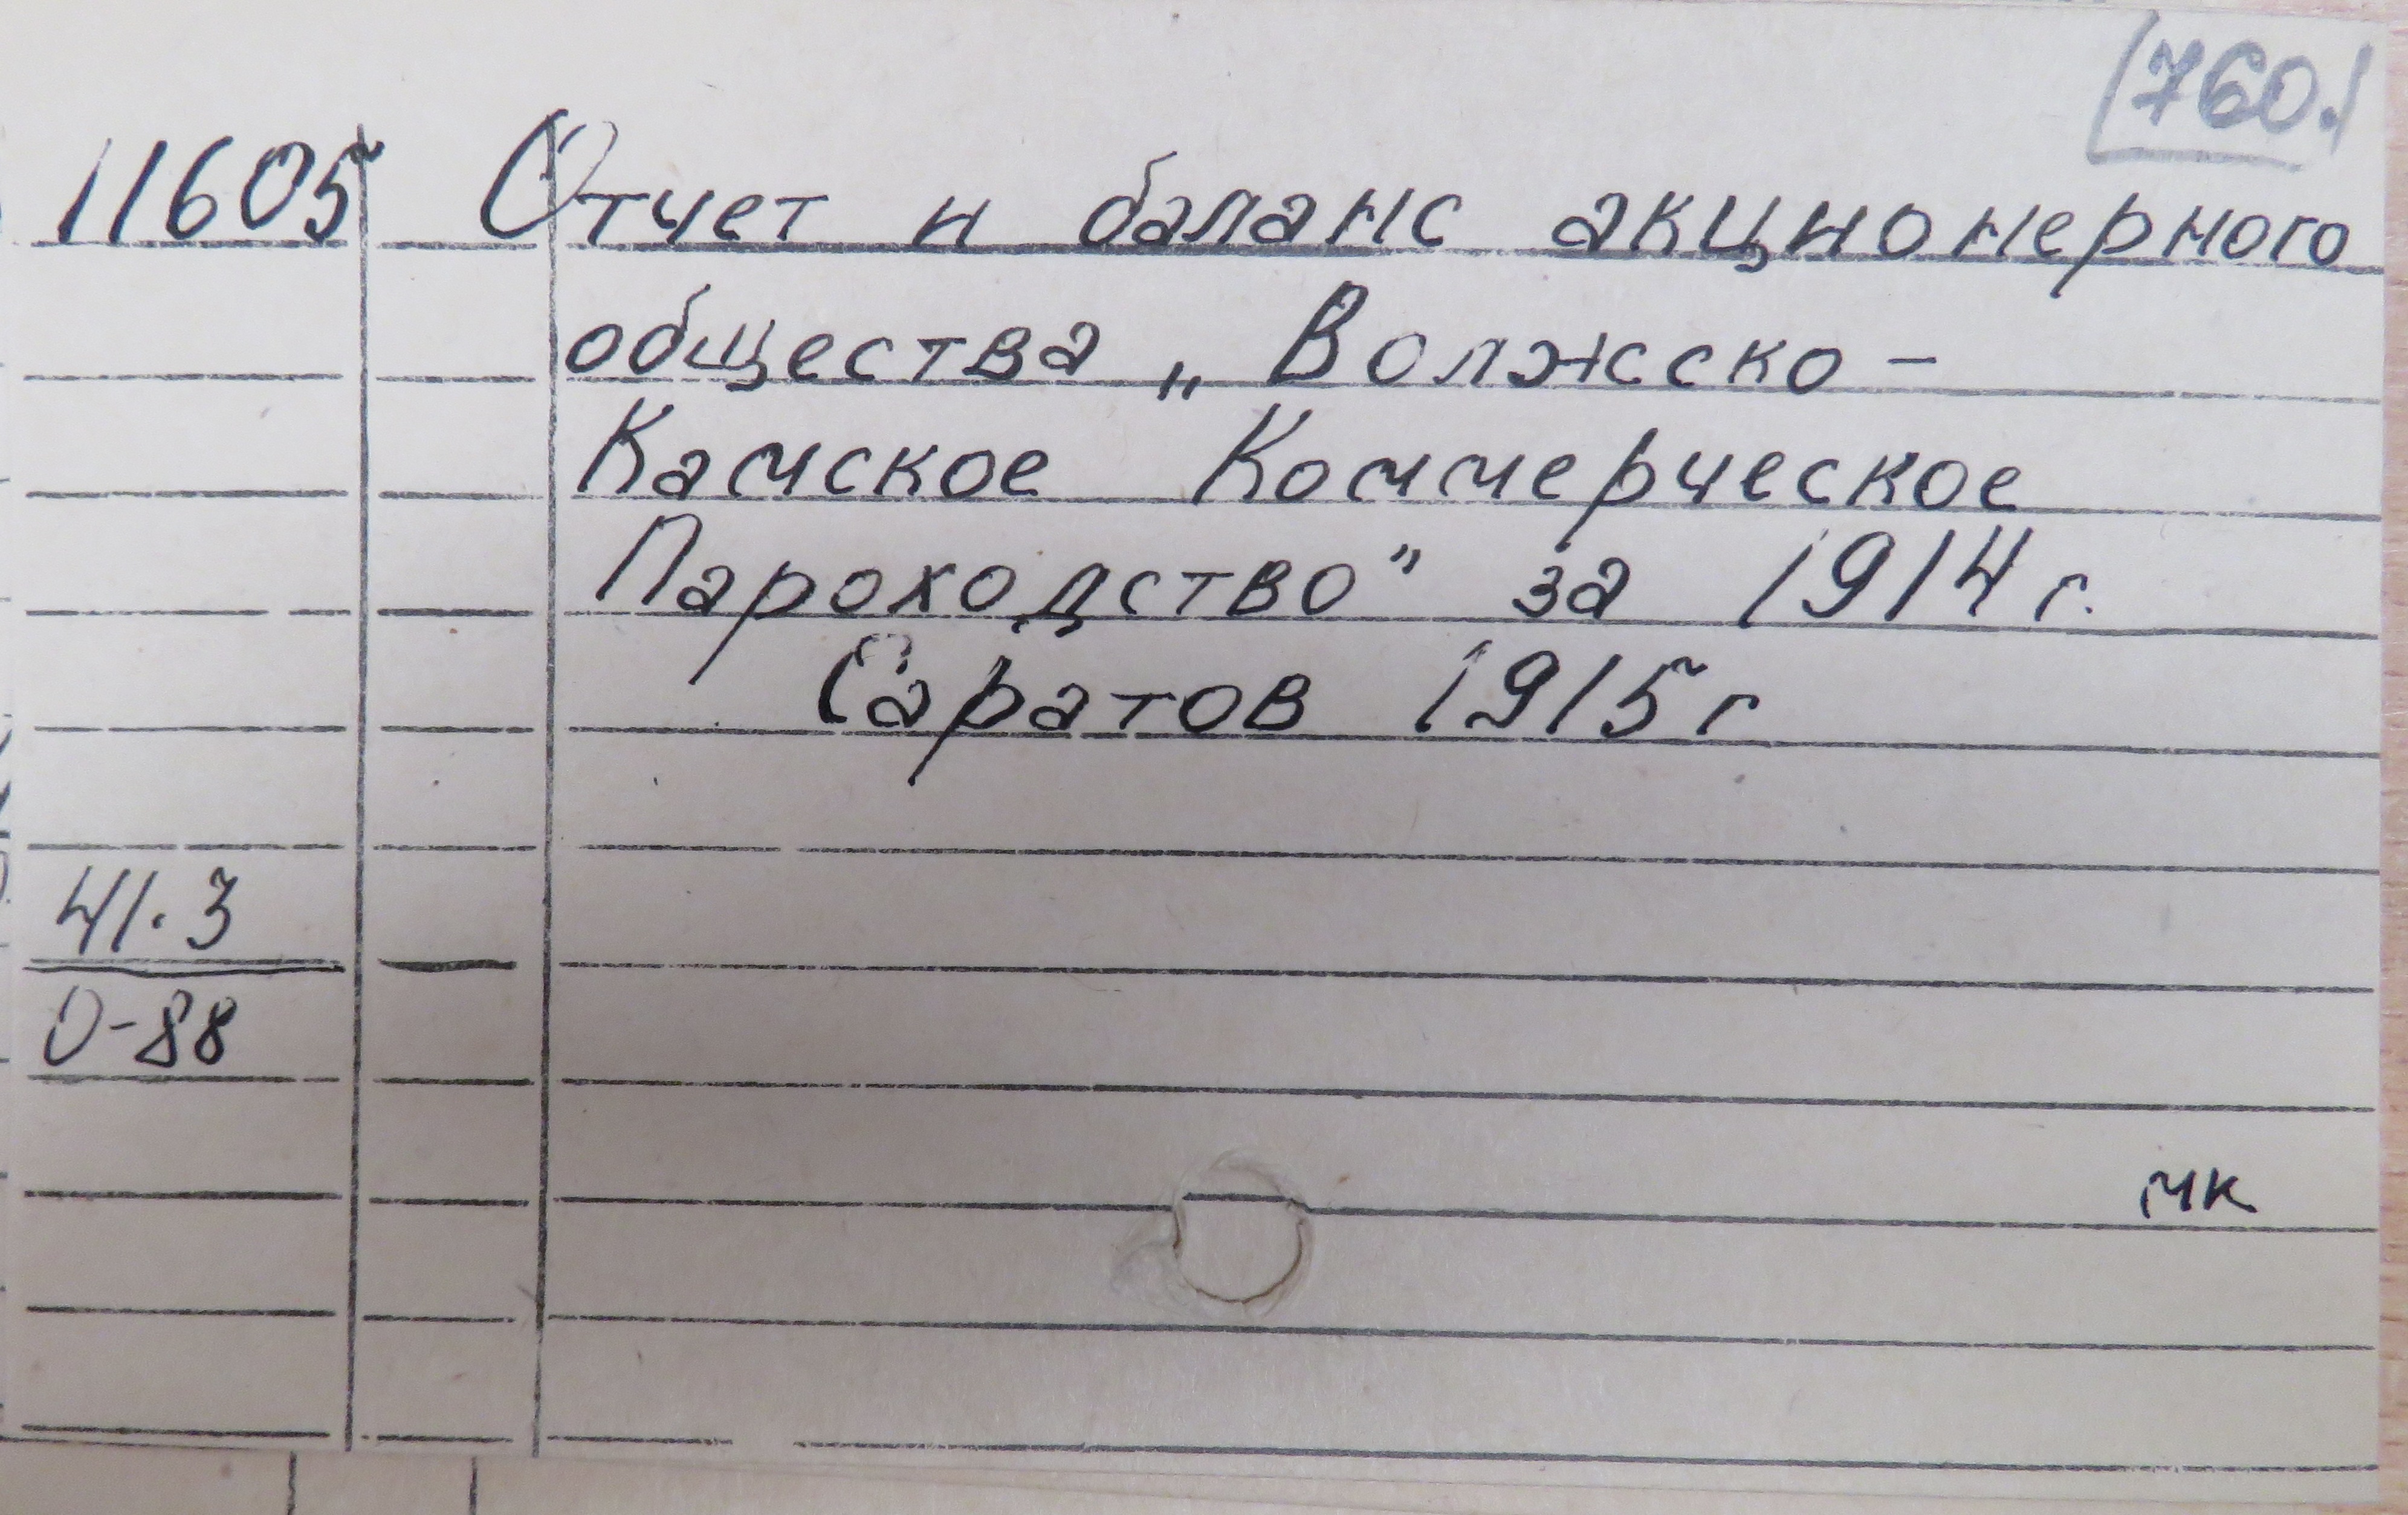 760.
11605 Отчет и баланс акционерного
общества „Волжско-
Камское Коммерческое
Пароходство" за 1914 г.
Саратов 1915 г
41.3
О-88
мк